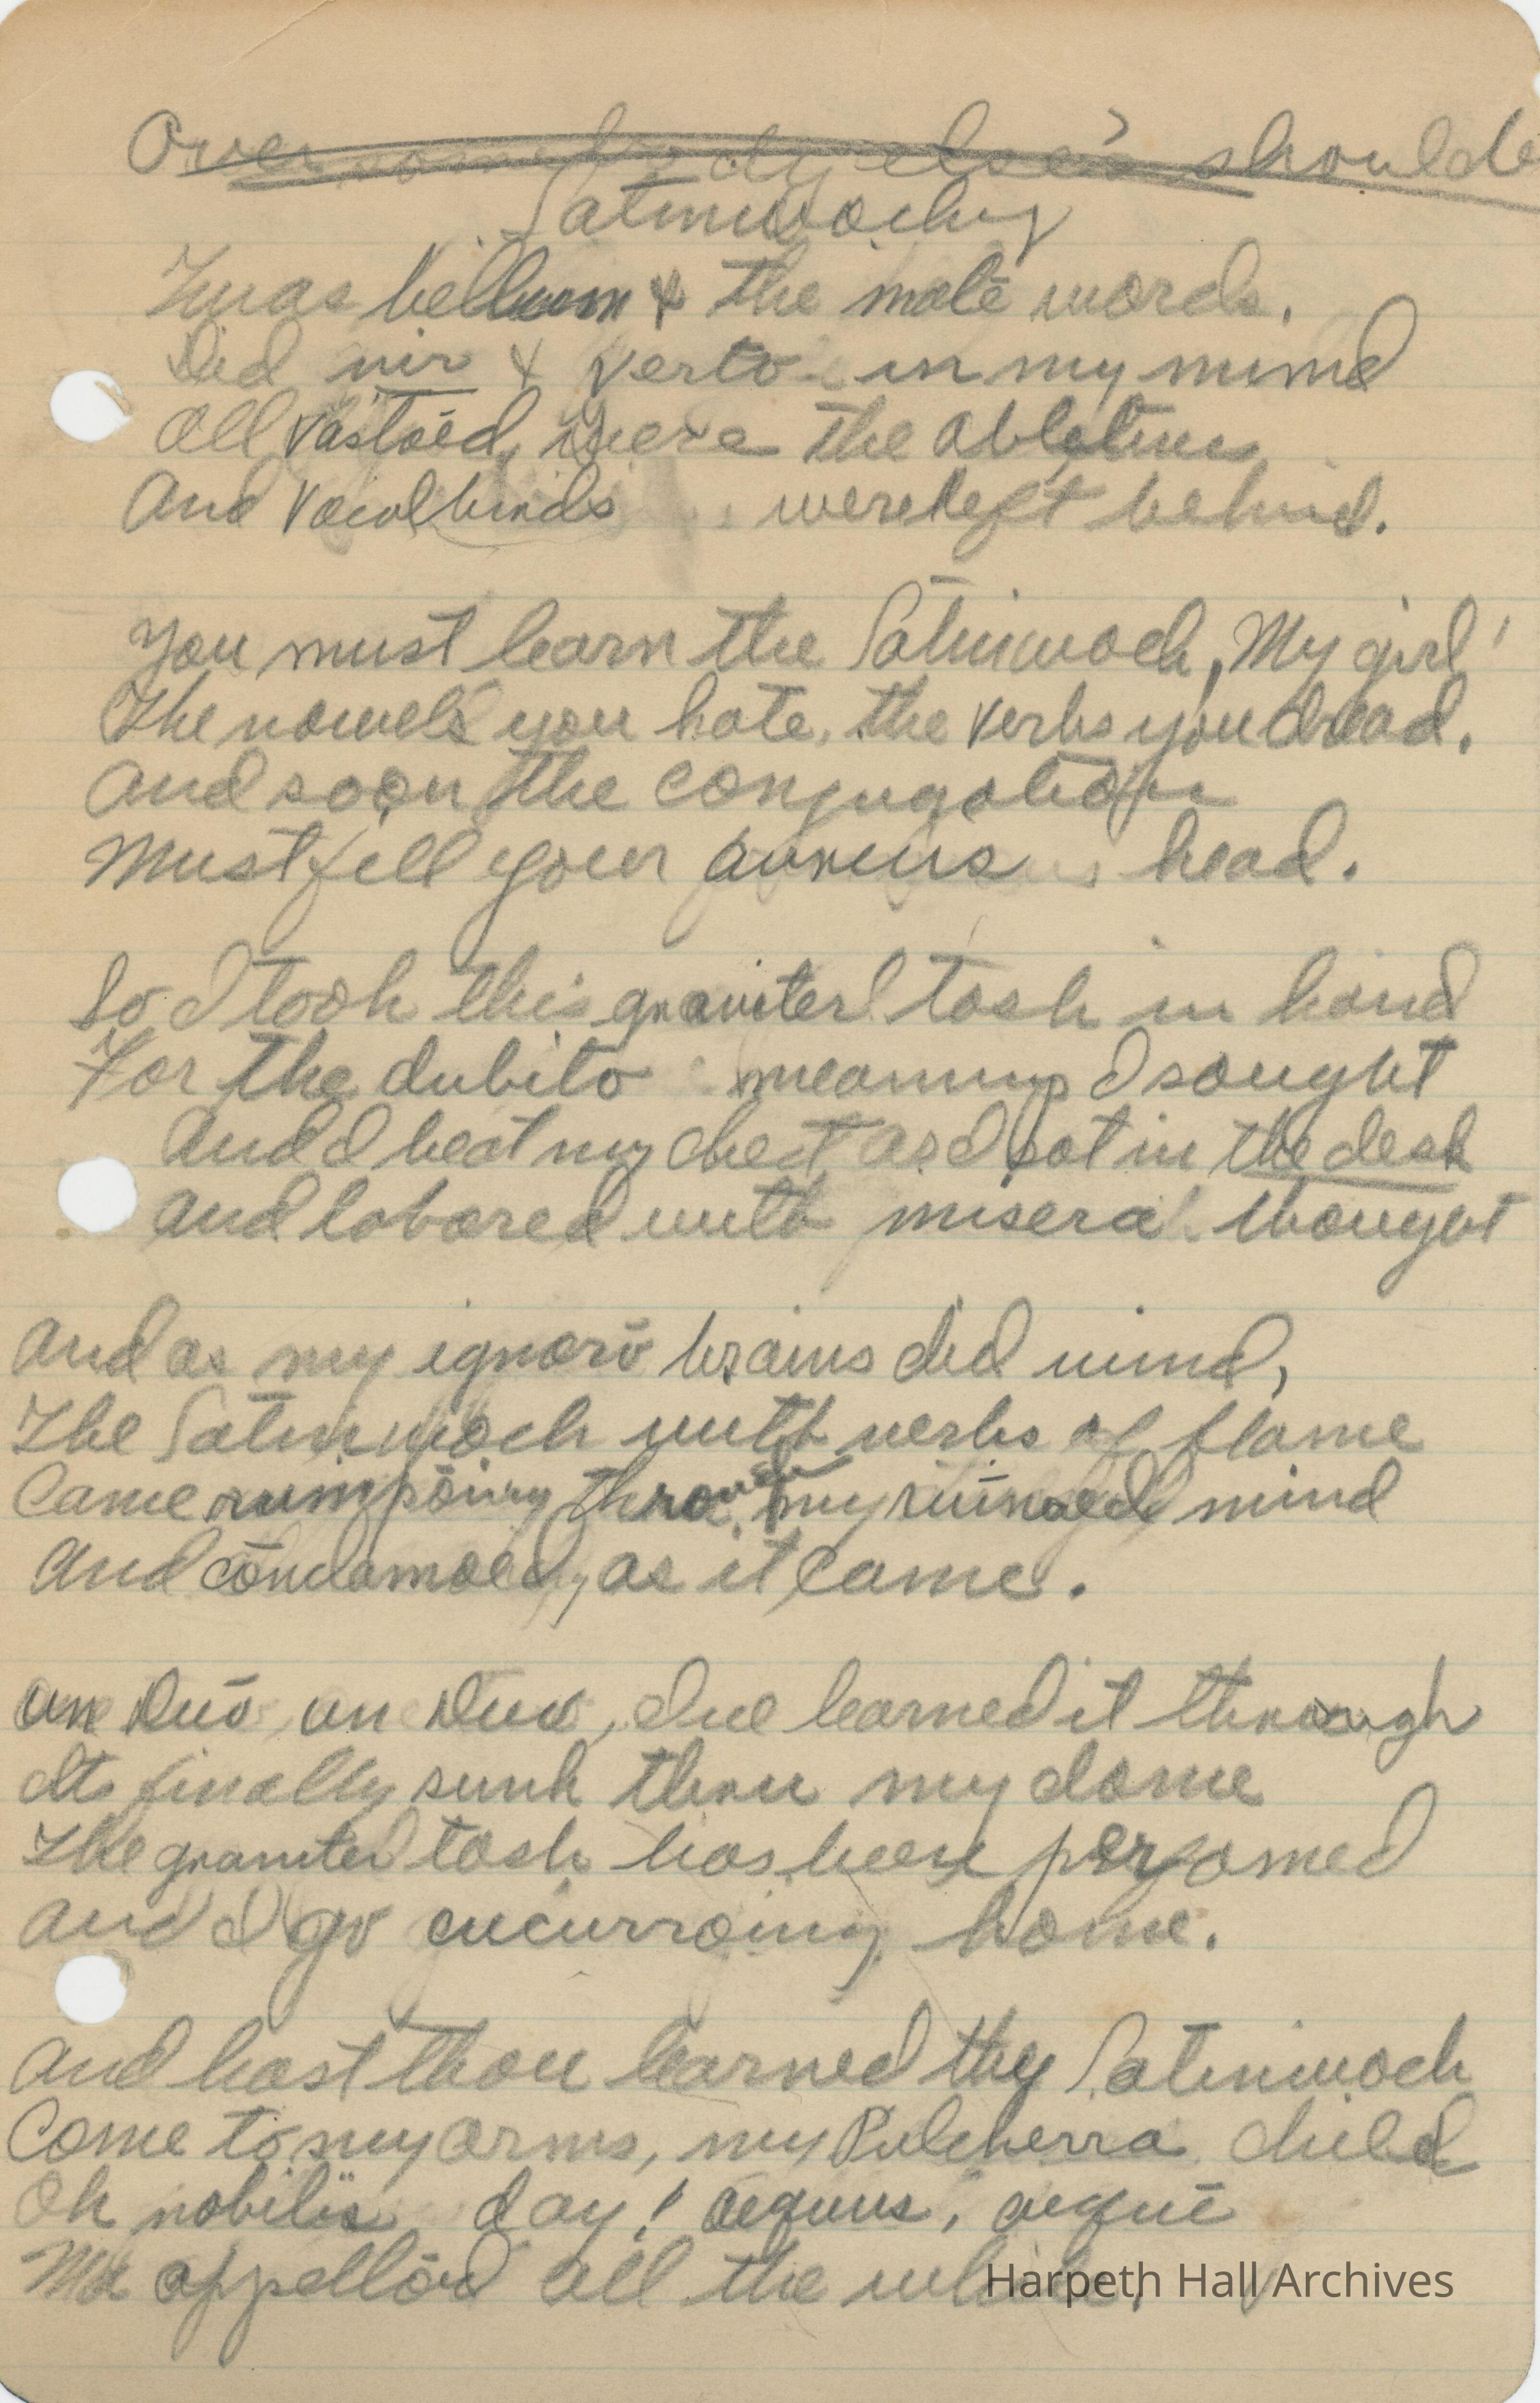 Over somebody else's shoulde
Latinwochy
Twas bellum & the malē words.
Did vir & verto in my mind
All vāstōed, were the ablative
And vocul binds were left behind.
You must learn the Latinwoch, My girl!
The vowels you hate, the verbs you dread,
And soon the conjugation
Must fill your furens head.
So I took this graviter task in hand
For the dubito meaning I sought
And I beat my chest as I sat in the desk
And labored with misera thought
And as my ignorō brains did wind,
The Latinwoch with verbs of flame
Came rumpōing through my ruinaed mind
And condamoed, as it came.
un Duo un Duo, I've learned it through
Its finally sunk thru my dome
The graviter task has been
And I go cucurroing home.
And hast thou learned thy Latinwoch
Come to my arms, my Pulcherra child
Oh nobilis day! aequus, aequē
He appellōed all the while.
Harpeth Hall Archives